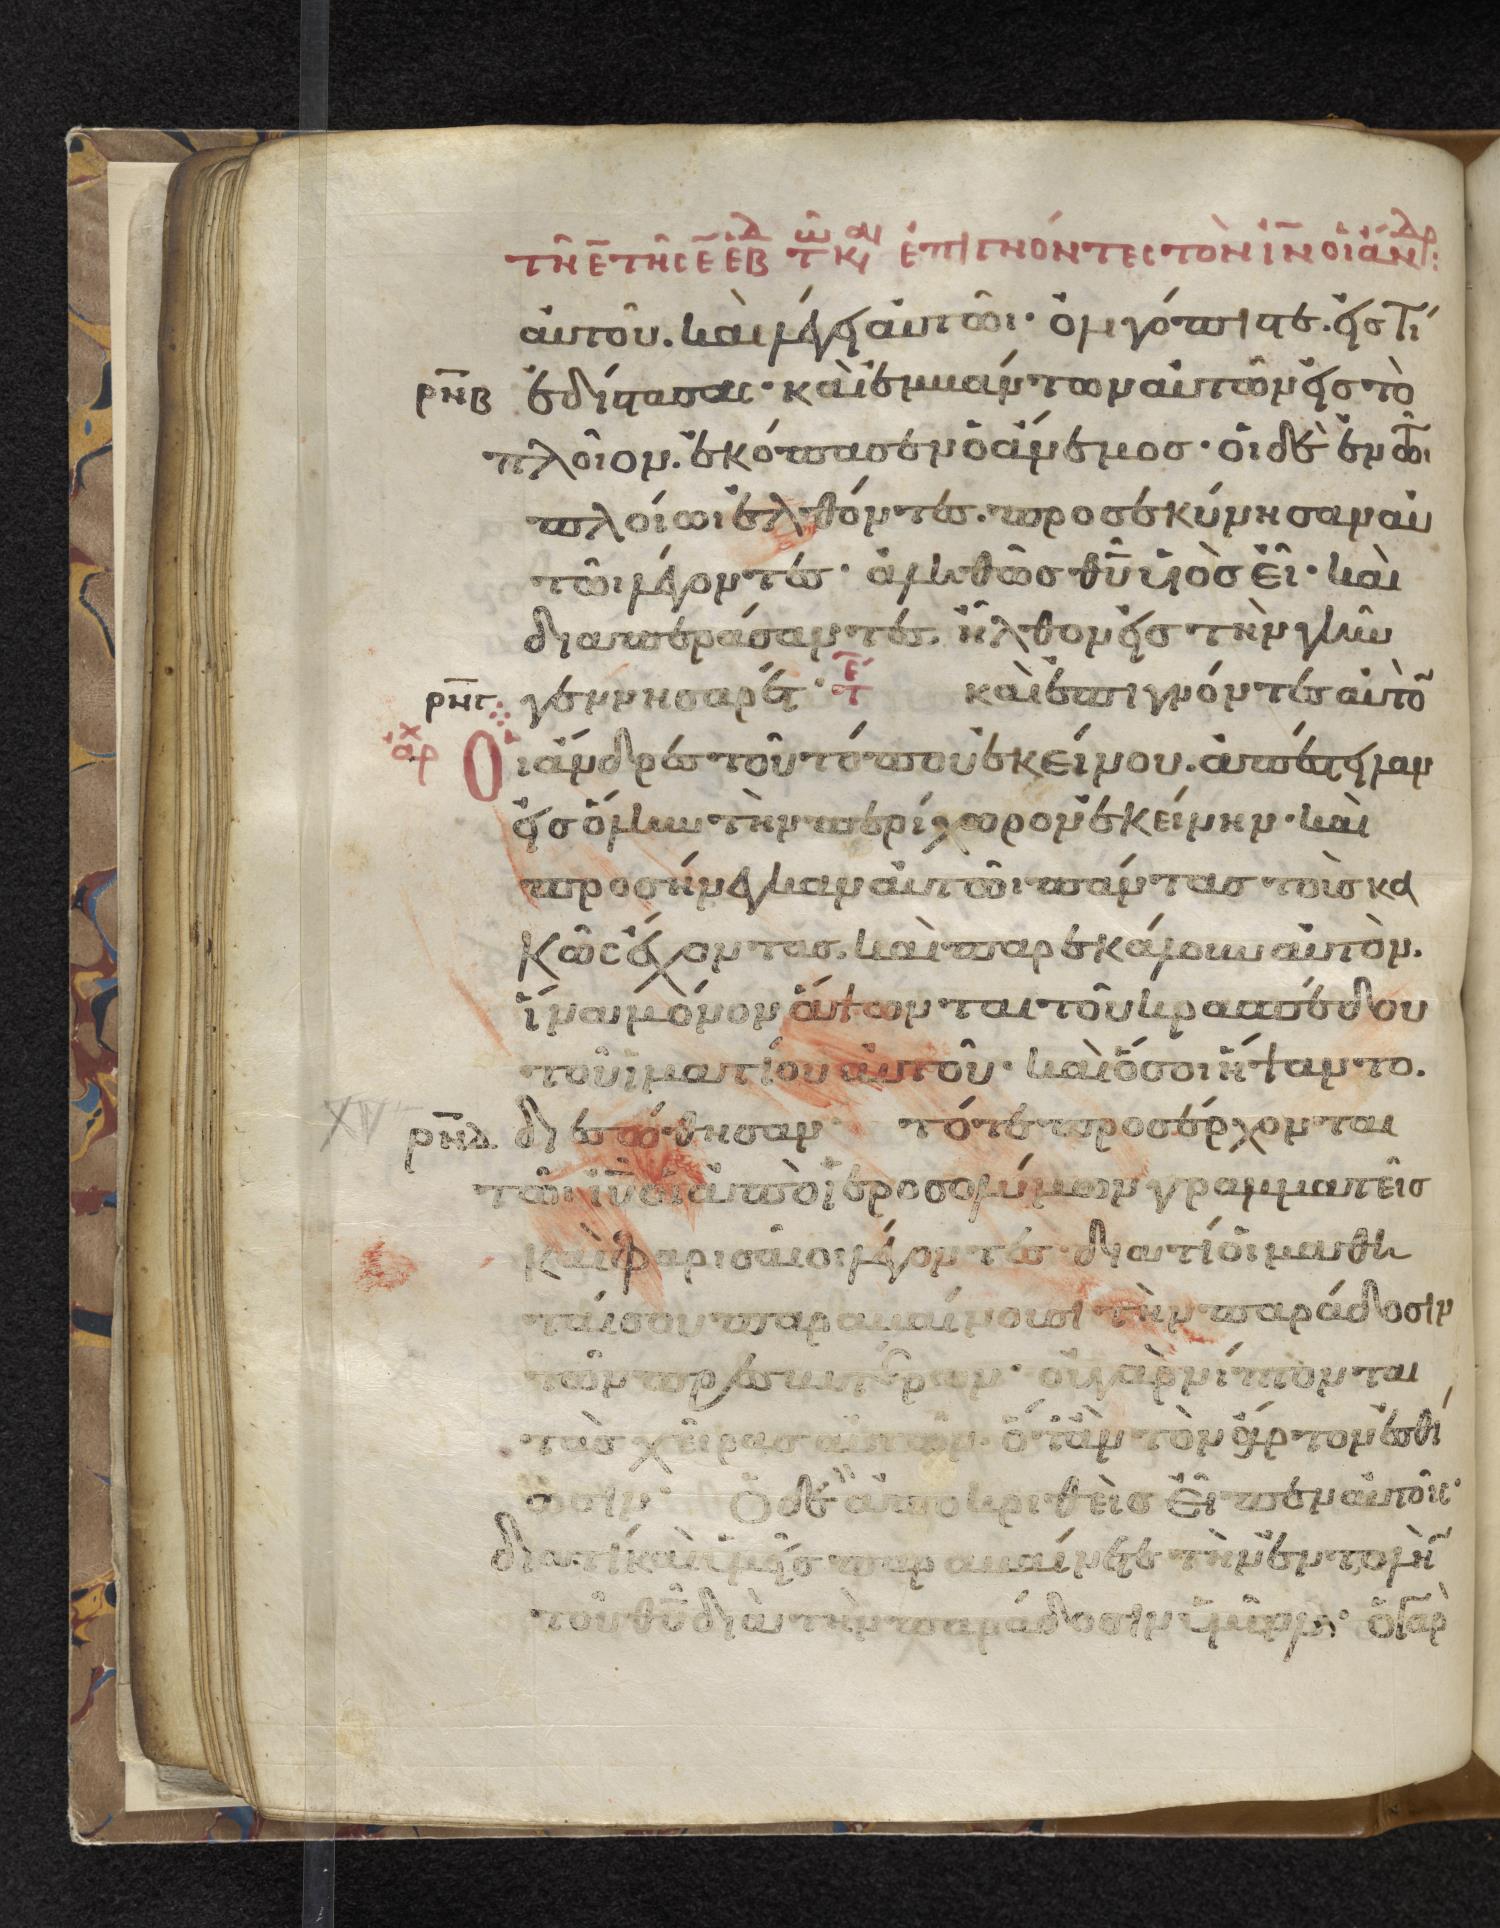 τῆ ε̄ τῆς ε̄ ἑβδ τῶ καιῶ ἐπιγνόντες τὸν ἰν̄ οἱ ἄνδρ:
αὐτοῦ. καὶ λέγει αὐτῶι· ὀλιγόπιστε. εἰς τί
ρνβ ἐδίστασας· καὶ ἐμβάντων αὐτῶν εἰς τὸ
πλοῖον. ἐκόπασεν ὁ ἄνεμος· οἱ δὲ ἐν τῶι
πλοίωι ἐλθόντες. προσεκύνησαν αὐ
τῶι λέγοντες· ἀληθῶς θῡ υἱὸς εἶ· καὶ
διαπεράσαντες. ἦλθον εἰς τὴν γῆν
ρνγ γεννησαρέτ· τε καὶ ἐπιγνόντες αὐτὸν
ἀρχ Οἱ ἄνδρες τοῦ τόπου ἐκείνου. ἀπέστειλαν
εἰς ὅλην τὴν περίχωρον ἐκείνην· καὶ
προσήνεγκαν αὐτῶι πάντας τοὺς κα
κῶς ἔχοντας. καὶ παρεκάλουν αὐτὸν.
ἵνα μόνον ἅψωνται τοῦ κρασπέδου
τοῦ ἱματίου αὐτοῦ· καὶ ὅσοι ἥψαντο.
XV ρνδ διεσώθησαν· τότε προσέρχονται
τῶι ἰῡ οἱ ἀπὸ ἱεροσολύμων γραμματεῖς
καὶ φαρισαῖοι λέγοντες· διατί οἱ μαθη
ταί σου παραβαίνουσι τὴν παράδοσιν
τῶν πρεσβυτέρων· οὐ γὰρ νίπτονται
τὰς χεῖρας αὐτῶν. ὅταν τὸν ἄρτον ἐσθί
ωσιν· Ὁ δὲ ἀποκριθεὶς εἶπεν αὐτοῖς·
διατί καὶ ὑμεῖς παραβαίνετε τὴν ἐντολὴν
τοῦ θῡ διὰ τὴν παράδοσιν ὑμῶν· ὁ γὰρ